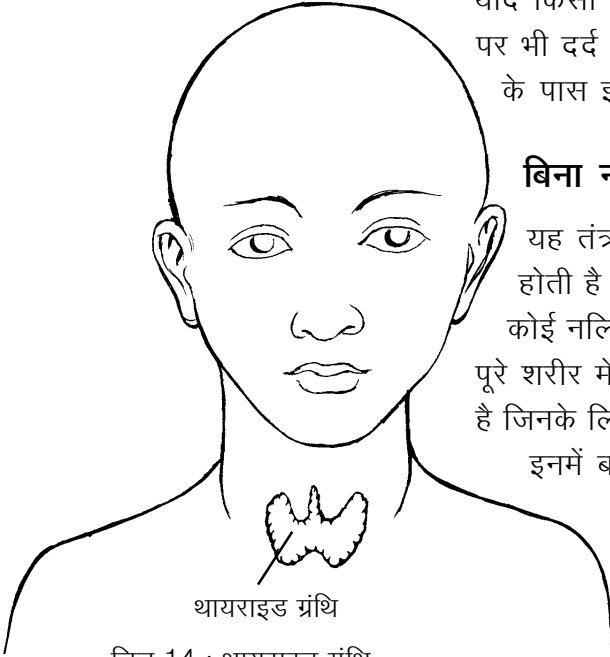 पर भी दर्द
के पास
बिना
यह तंत्र
होती है
कोई
पूरे शरीर में
है जिनके
इनमें
थायराइड ग्रंथि
चित्र 14 : थायराइड ग्रंथि